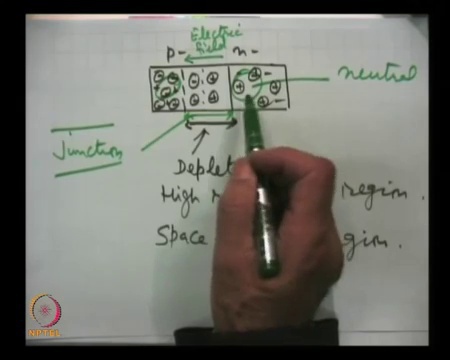 Electric
field
p- n-
neutral
Junction
Deplet
High region.
Space gion.
NPTEL